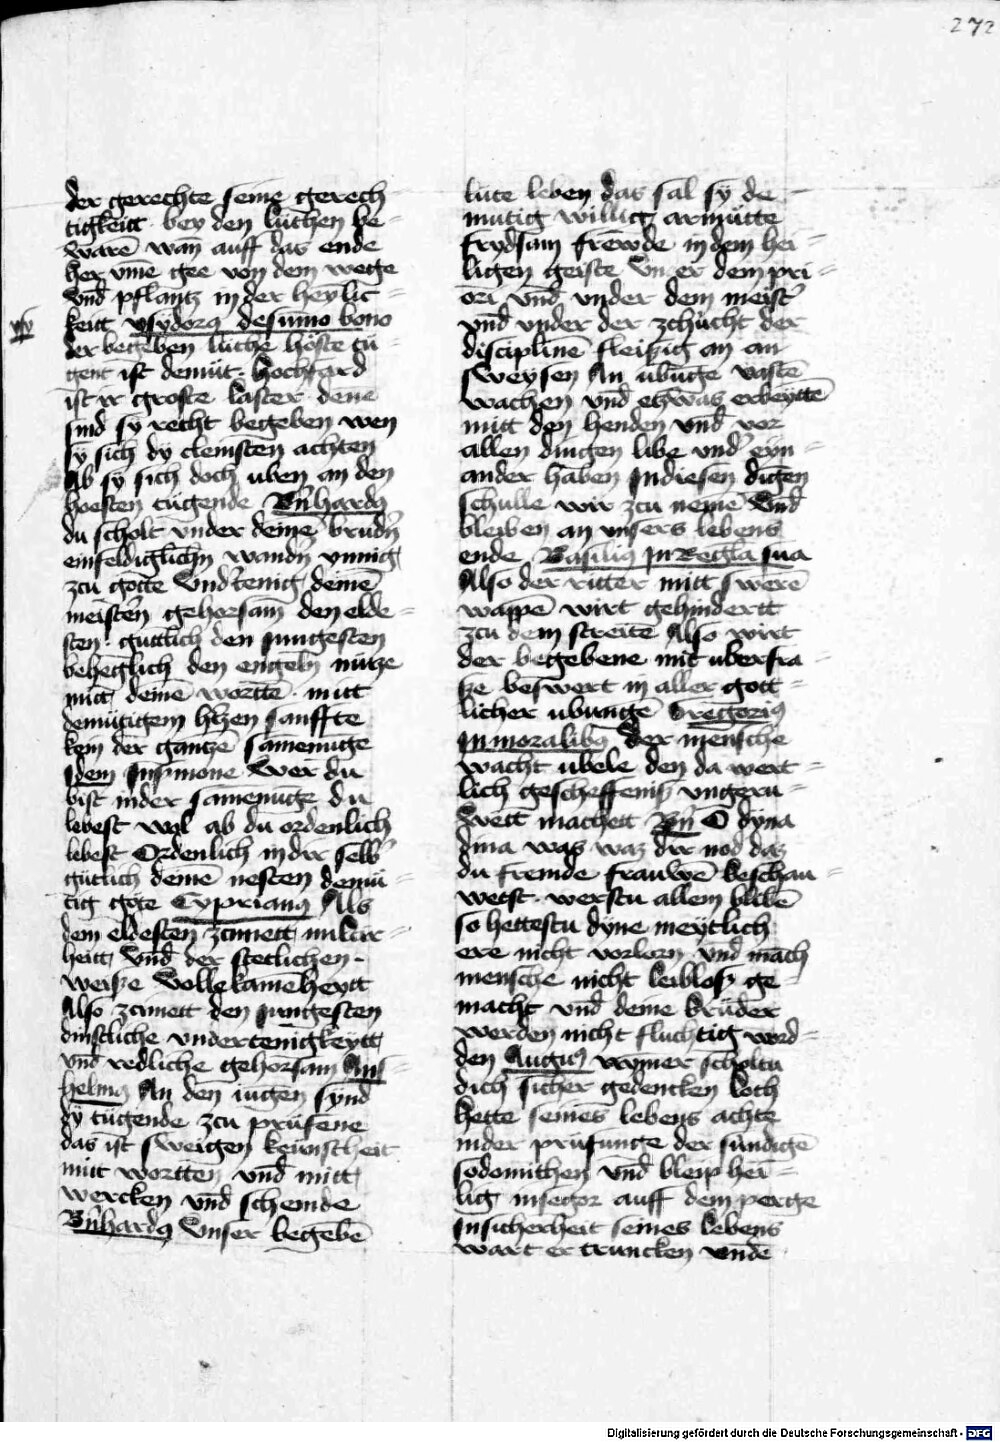 272
der gerechte seine gerech=
tigkeitt · bey den lüthen be=
warē wan auff das ende
her vmē gee von dem wege
vnd̄ pflantz in der heylic=
keitt ysydorꝯ de sūmo bono
der begeben lüthe höste tu=
gent ist demüt · hochfard
ist ir groste laster denē
sind sy recht begeben wen
sy sich dy clemsten achten
Ab sy sich doch uben an den
hoesten tügende Bn̄hardꝯ
du scholt vnder deinē brudn̄
einfeldiglichn̄ wandn̄ ynnig
zcu gotte vndt̄enig deinē
meistern̄ gehorsam̄ den elde=
sten · guttlich den Jungesten
beheglich den engeln̄ nütze
mitt deinē wortte · mitt
demütigem hr̄zen sanffte
kem der gantzē samenūge
Jdem Jn s̄mone Wer du
bist in der samenūge du
lebest wol ab du ordenlich
lebest Ordenlich in dir selbr̄
gütlich deinē nesten demü=
tig gote Cyprianꝯ Als
dem eldesten zcimett milter=
heitt vnd̄ der stetlichen
weisze Vollekāmēheytt
Also zcimett den Jungesten
dinstliche undertenigkeytt
vnd redliche gehorsam An=
helmꝯ An den iugen synd
dy tügende zcu prüfene
das ist sweigen keuscheit
mit wortten vnd̄ mitt
wercken vnd̄ schemde
Bn̄hardꝯ Vnser begebē
lüte leben das sal sy de=
mutig willig armütte
frydsam frewde · in dem hei=
ligen geiste Vnder dem pri=
ori vnd̄ vnder dem meistr̄
vnd̄ vnder der zchücht der
disciplinē fleiszig an an
sweysen An ubūge vastē
wachen vnd̄ etzwas erbeyttē
mitt den henden vnd̄ vor
allen dingen libe vndr̄ eyn=
ander haben Jn diesen digen
schulle wir zcu nemē Vnd̄
bleiben an vnsers lebens
ende Basiliꝯ Jn Regl̄a sua
Also der ritter mitt swerē
wappē wirt gehindertt
zcu dem streite Also wirt
der begebene mit uberfra=
sze beswert in aller gott=
licher ubunge Gregoriꝯ
Jn moralibꝯ Der mensche
wacht ubele den da wert=
lich gescheffenisz ungeru=
wett machett Bn̄ O dyna
dina was waz dir nod daz
du fremde frauwē beschau=
wetst · werstu allein blibē
so hettestu dyne meytlich
ere nicht vorlorn vnd̄ mach
mensche nicht leiblosz ge=
macht vnd̄ deine brüder
werden nicht fluchtig word=
den Augꝯ ymmer scholtu
dich sicher gedencken loth
hette seines lebens achte
in der prüfunge der sündigē
sodomithen vnd̄ bleip her=
lig in segor auff dem perge
Jn sicherheit seines lebens
wart er truncken vnde
Digitalisierung gefördert durch die Deutsche Forschungsgemeinschaft - DFG